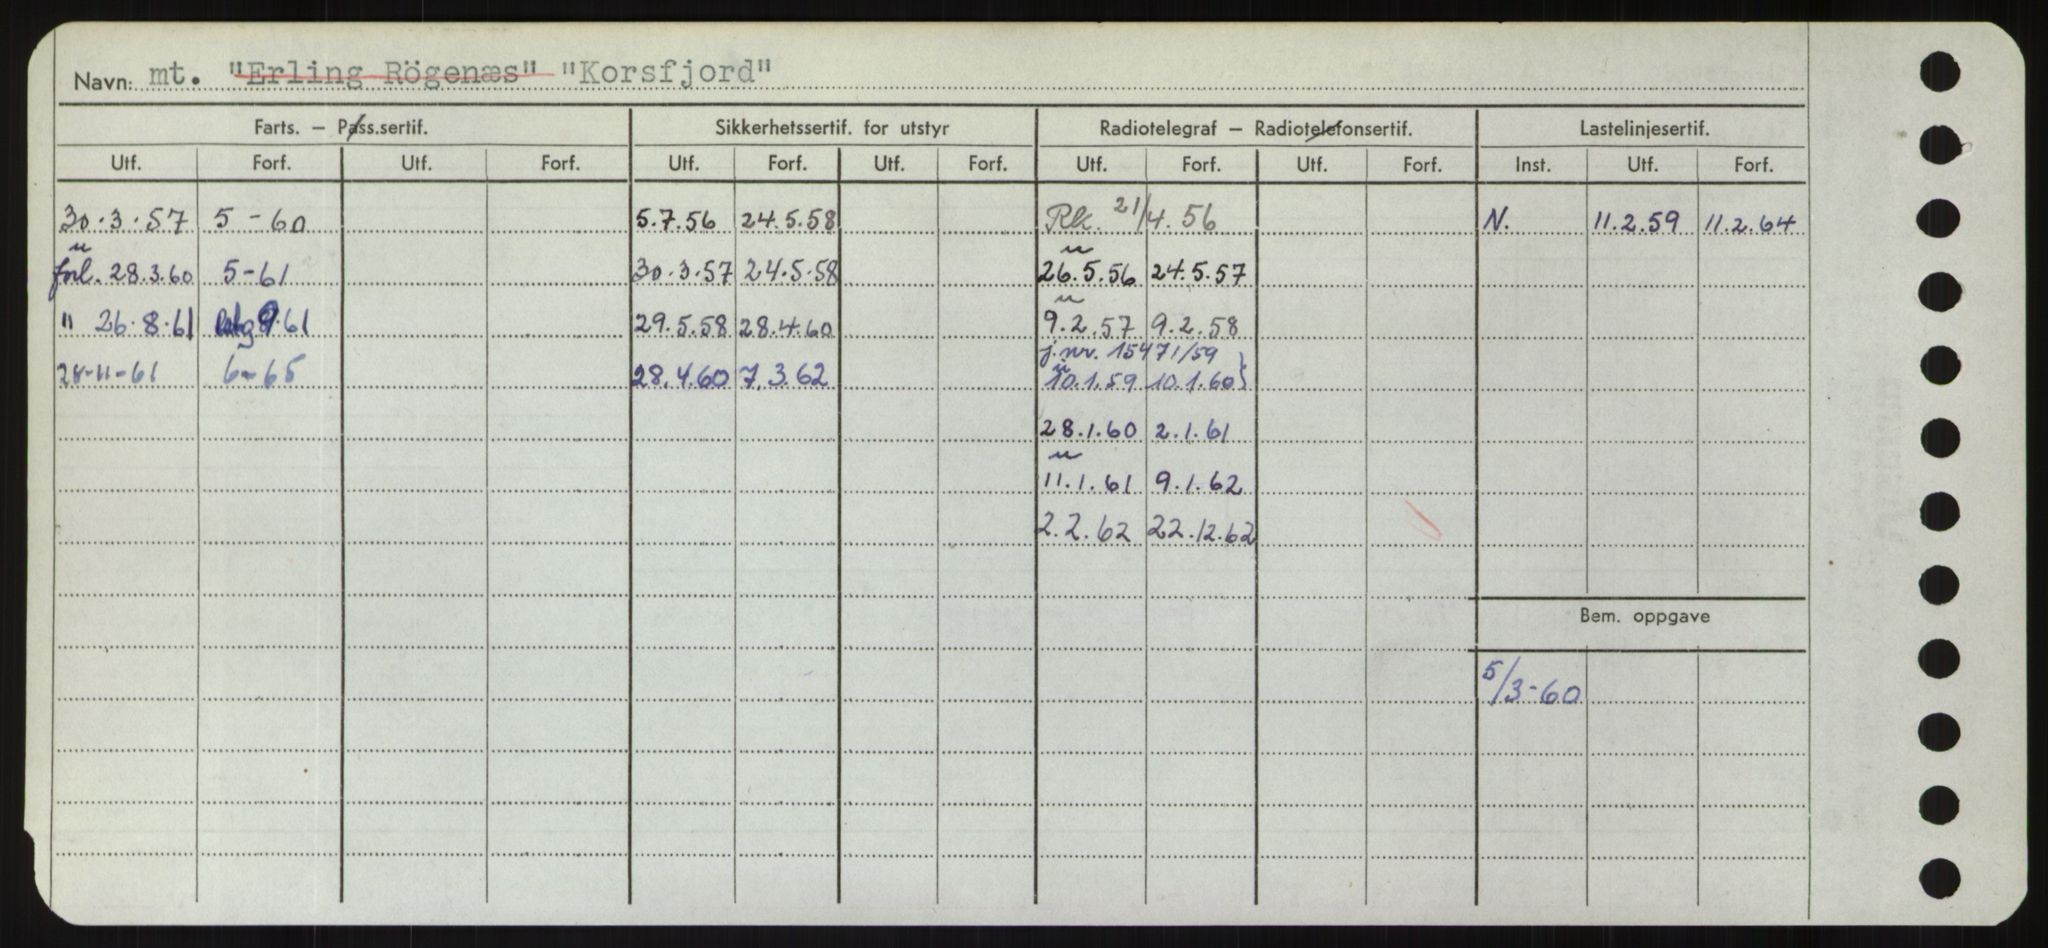 Navn: mt. "Erling Rögenæs" "Korsfjord"
Farts. – Pass.sertif. Sikkerhetssertif. for utstyr Radiotelegraf – Radiotelefonsertif. Lastelinjesertif.
Utf. Forf. Utf. Forf. Utf. Forf. Utf. Forf. Utf. Forf. Utf. Forf. Inst. Utf. Forf.
30.3.57 5-60 5.7.56 24.5.58 Rk. 21/4.56 N. 11.2.59 11.2.64
forl. 28.3.60 5-61 30.3.57 24.5.58 26.5.56 24.5.57
" 26.8.61 9.61 29.5.58 28.4.60 9.2.57 9.2.58
j.nr. 15471/59
28-11-61 6-65 28.4.60 7.3.62 10.1.59 10.1.60}
28.1.60 2.1.61
11.1.61 9.1.62
2.2.62 22.12.62
Bem. oppgave
5/3-60